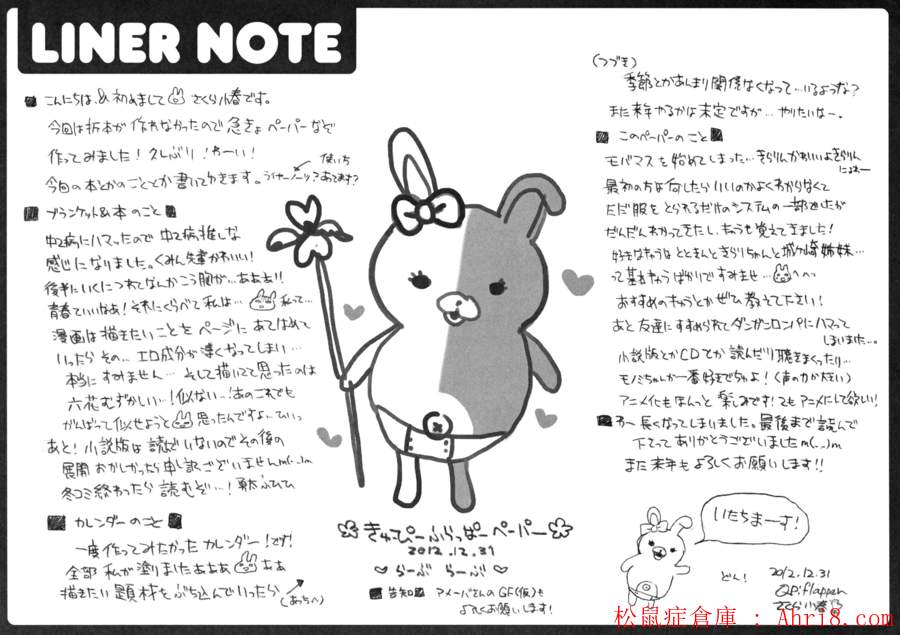 LINER NOTE
■ こんにちは、& 初めまして さくら小春です。
今回は折本が作れなかったので急きょペーパーなぞ
作ってみました!久しぶり!わーい!
今回の本とかのこととか書いてゆきます。ライナーノーツ?あってます?
使いち
■ ブランケット&本のこと ■
中2病にハマったので中2病推しな
感じになりました。くみん先輩かわいい!
後半にいくにつれてなんかこう胸が…あああ!!
青春ていいねぁ!それにくらべて私は… 私って…
漫画は描きたいことをページにあてはめて
いったらその…エロ成分が薄くなってしまい…
本当にすみません…そして描いてて思ったのは
六花むずかしい…!似ない…!あのこれでも
がんばって似せようと 思ったんですよ…
あと!小説版は読んでいないのでその後の
展開おかしかったら申し訳ございませんm(__)m
冬コミ終わったら読むぞ…!
■ カレンダーのこと ■
一度作ってみたかったカレンダー!です!
全部私が塗りましたあああ ああ
描きたい題材をぶち込んでいったら
(あっちへ)
(つづき)
季節とかあんまり関係なくなって…いるような?
また来年やるかは未定ですが…やりたいなー。
■ このペーパーのこと ■
モバマスを始めてしまった…きらりんかわいいよきらりん
にょわー
最初の方は何したらいいのかよくわからなくて
ただ服をとられるだけのシステムの一部でしたが
だんだんわかってきたし、キャラも覚えてきました!
好きなキャラはとときんときらりちゃんと城ヶ崎姉妹…
って基キャラばかりですみませ… へへっ
おすすめのキャラとかぜひ教えてください!
あと友達にすすめられてダンガンロンパにハマって
しまいました…。
小説版とかCDとか読んだり聴きまくったり…
モノミちゃんが一番好きでちゅよ!(声の力が大きい)
アニメ化もほんっと楽しみです!2もアニメにして欲しい!
■ わー長くなってしまいました。最後まで読んで
下さってありがとうございましたm(__)m
また来年もよろしくお願いします!!
きゅーぴーふらっぱーペーパー
2012.12.31
♡ らーぶ らーぶ ♡
■ 告知 アメーバさんのGF(仮)も
よろしくお願いします!
いたちまーす!
どん!
2012.12.31
QP:flapper
さくら小春
松鼠症倉庫 : Ahri8.com